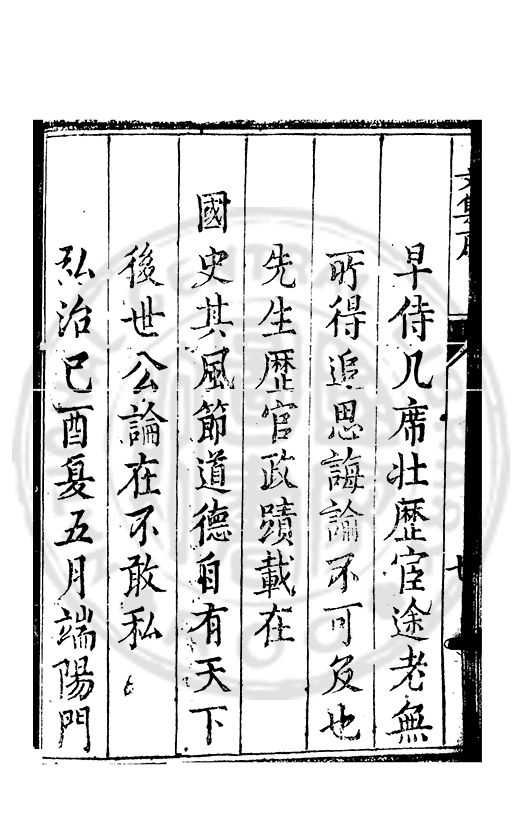 早侍几席壯歷宦途老無
所得追思誨諭不可及也
先生歷官政蹟載在
國史其風節道德自有天下
後世公論在不敢私
弘治己酉夏五月端陽門